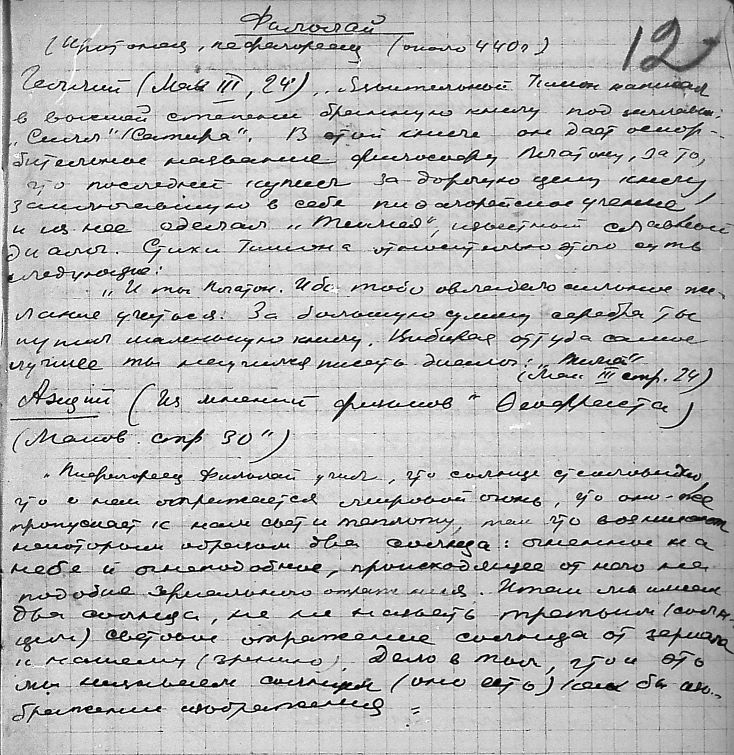 Филолай
12
(Кротонец, пифагореец (около 440г)
Геллий (Мак III, 24) „Язвительный Тимон написал
в высшей степени бранную книгу под заглавием:
„Силлы" /Сатира". В этой книге он дает оскор-
бительное название философу Платону, за то,
что последний купил за дорогую цену книгу,
заключавшую в себе пифагорейское учение,
и из нее сделал „Тимея", известный славный
диалог. Стихи Тимона относительно этого суть
следующие:
„И ты Платон. Ибо тобою овладело сильное же-
лание учиться. За большую сумму серебра ты
купил маленькую книгу. Выбирая оттуда самое
лучшее ты научился писать диалог: „Тимей"
(Мак III стр. 24)
Аэций (Из мнений физиков" Феофраста)
(Маков. стр 30")
„Пифагореец Филолай учил, что солнце стекловидно,
что в нем отражается мировой огонь, что оно-же
пропускает к нам свет и теплоту, так что возникают
некоторым образом два солнца: огненное на
небе и огнеподобное, происходящее от него на
подобие зеркального отражения. Итак мы имеем
два солнца, не назвать третьим (солн-
цем) световое отражение солнца от зеркала
к нашему (зрению). Дело в том, что и это
мы называем солнцем (оно есть) как бы изо-
бражение изображения =